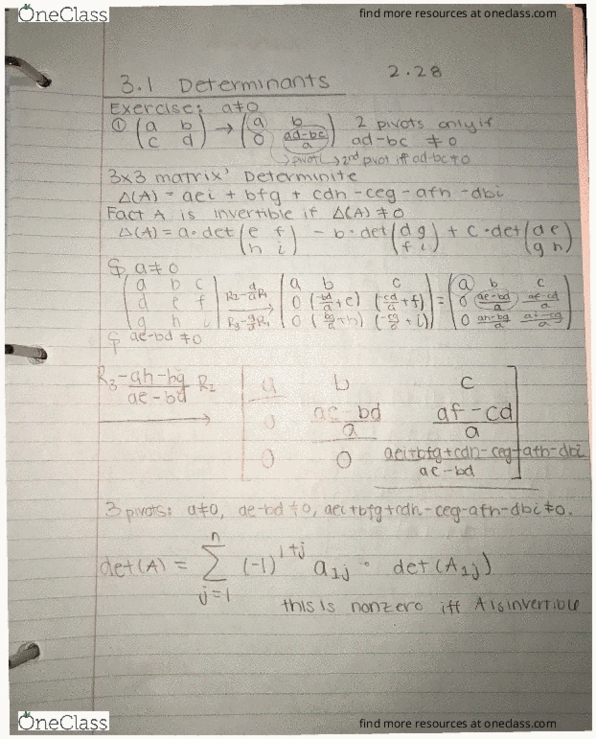 OneClass
find more resources at oneclass.com
3.1 Determinants 2.28
Exercise: a≠0
① (a b; c d) → (a b; 0 (ad-bc)/a) 2 pivots only if ad-bc ≠ 0
pivot 1 → 2nd pivot if ad-bc≠0
3x3 matrix' Determinite
Δ(A) = aei + bfg + cdh - ceg - afh - dbi
Fact A is invertible if Δ(A) ≠ 0
Δ(A) = a·det(e f; h i) - b·det(d g; f i) + c·det(d e; g h)
a≠0
|a b c; d e f; g h i| R2-d/a R1 R3-g/a R1 → |a b c; 0 (-bd/a+e) (-cd/a+f); 0 (-bg/a+h) (-cg/a+i)| = (a b c; 0 (ae-bd)/a (af-cd)/a; 0 (ah-bg)/a (ai-cg)/a)
ae-bd ≠0
R3 - (ah-bg)/(ae-bd) R2 → [a b c; 0 (ae-bd)/a (af-cd)/a; 0 0 (aei+bfg+cdh-ceg-afh-dbi)/(ae-bd)]
3 pivots: a≠0, ae-bd ≠0, aei+bfg+cdh-ceg-afh-dbi≠0.
det(A) = Σ j=1 n (-1)^1+j a1j · det(A1j)
this is nonzero iff A is invertible
OneClass
find more resources at oneclass.com